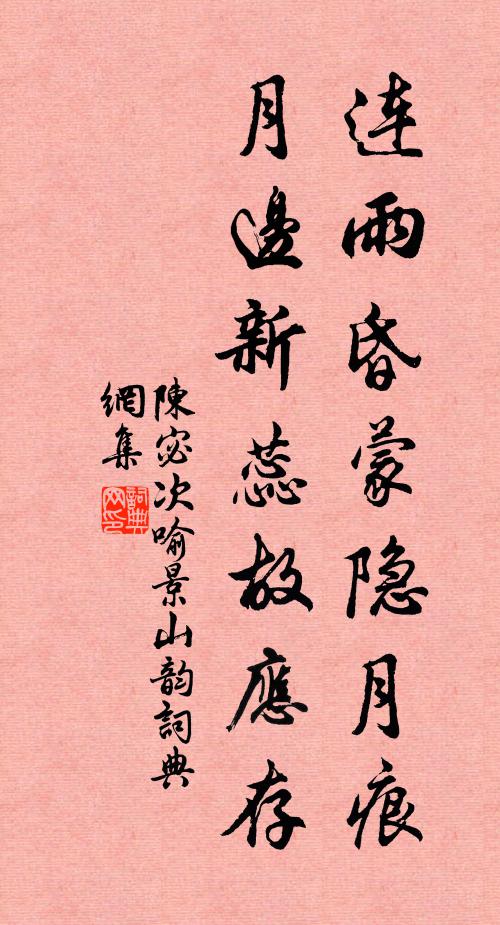 连雨昏蒙隐月痕
月邊新蕊故應存
陳宓次喻景山韵詞典
網集
詞典
网印